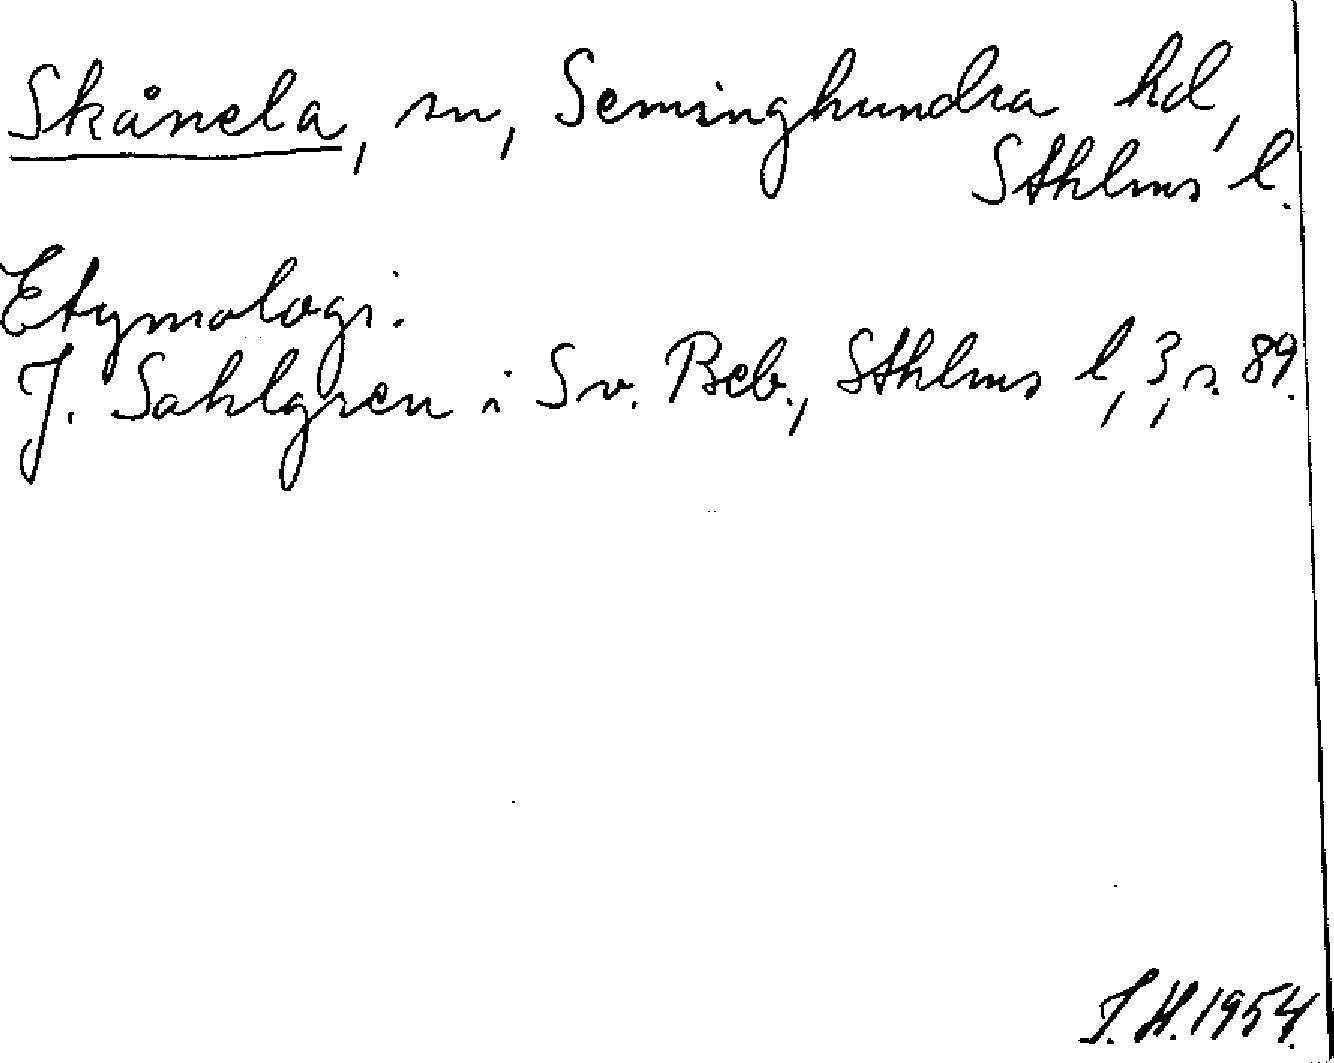 Skånela, sn, Seminghundra hd,
Sthlms l.
Etymologi.
J. Sahlgren i Sv. Beb., Sthlms l, 3, s. 89.
J. H. 1954.